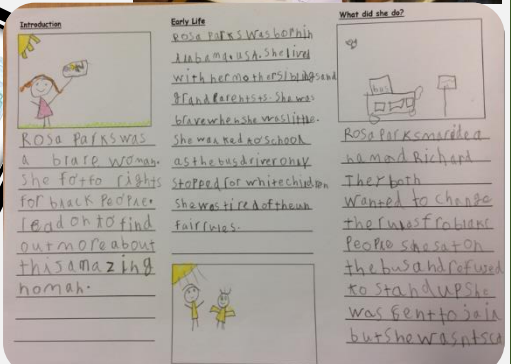 Introduction
Rosa Parks was
a brare woman.
She fotto rights
for black people.
read on to find
out more about
this amazing
noman.
Early Life
Rosa Parks was bophin
Alabama, USA. She lived
with her mother siblings and
grand parents. She was
brave when she was little.
She walked to school
as the bus driver only
stopped for white children
She was tired of the un
fair rules.
What did she do?
bus
Rosa Parks maride a
namend Richard
They both
wanted to change
the rules fro blanc
People she sat on
the bus and refused
to stand up she
was sent to jail
but she wasnt sca